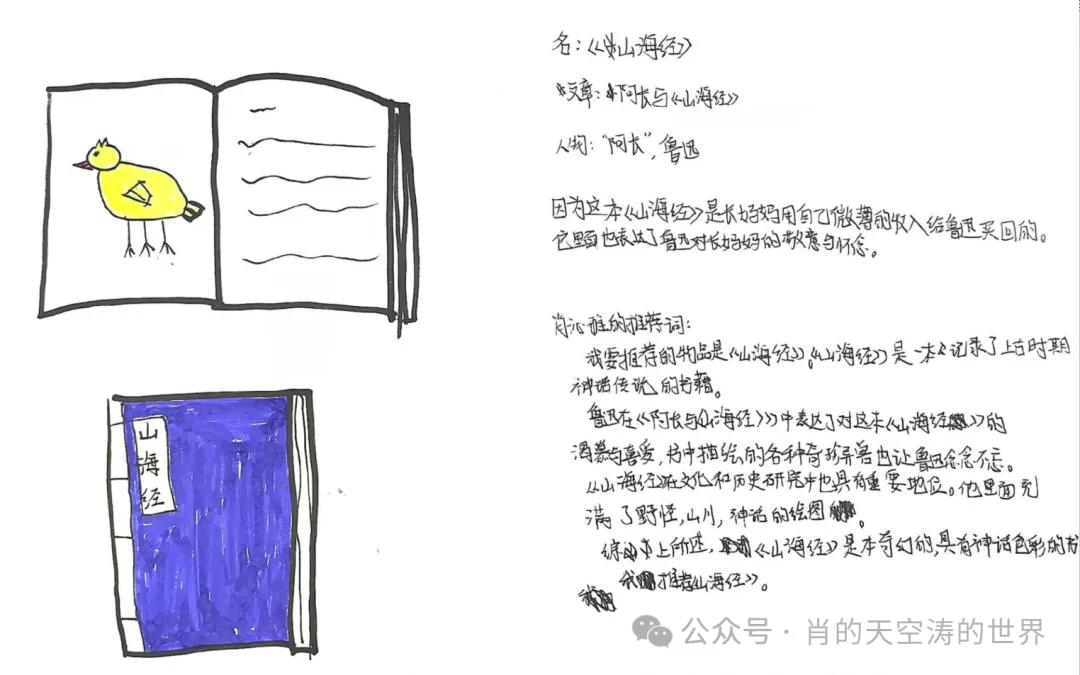 山海经
名：《山海经》
文章：《阿长与《山海经》
人物：“阿长”，鲁迅
因为这本《山海经》是长妈妈用自己微薄的收入给鲁迅买回的。
它里面也表达了鲁迅对长妈妈的敬意与怀念。
的推荐词：
我要推荐的物品是《山海经》。《山海经》是一本记录了上古时期
神话传说的书籍。
鲁迅在《阿长与《山海经》》中表达了对这本《山海经》的
渴慕与喜爱，书中描绘的各种奇珍异兽也让鲁迅念念不忘。
《山海经》在文化和历史研究中也具有重要地位。他里面充
满了野怪，山川，神话的绘图。
综上所述，《山海经》是本奇幻的，具有神话色彩的书
我推荐《山海经》。
公众号·肖的天空涛的世界